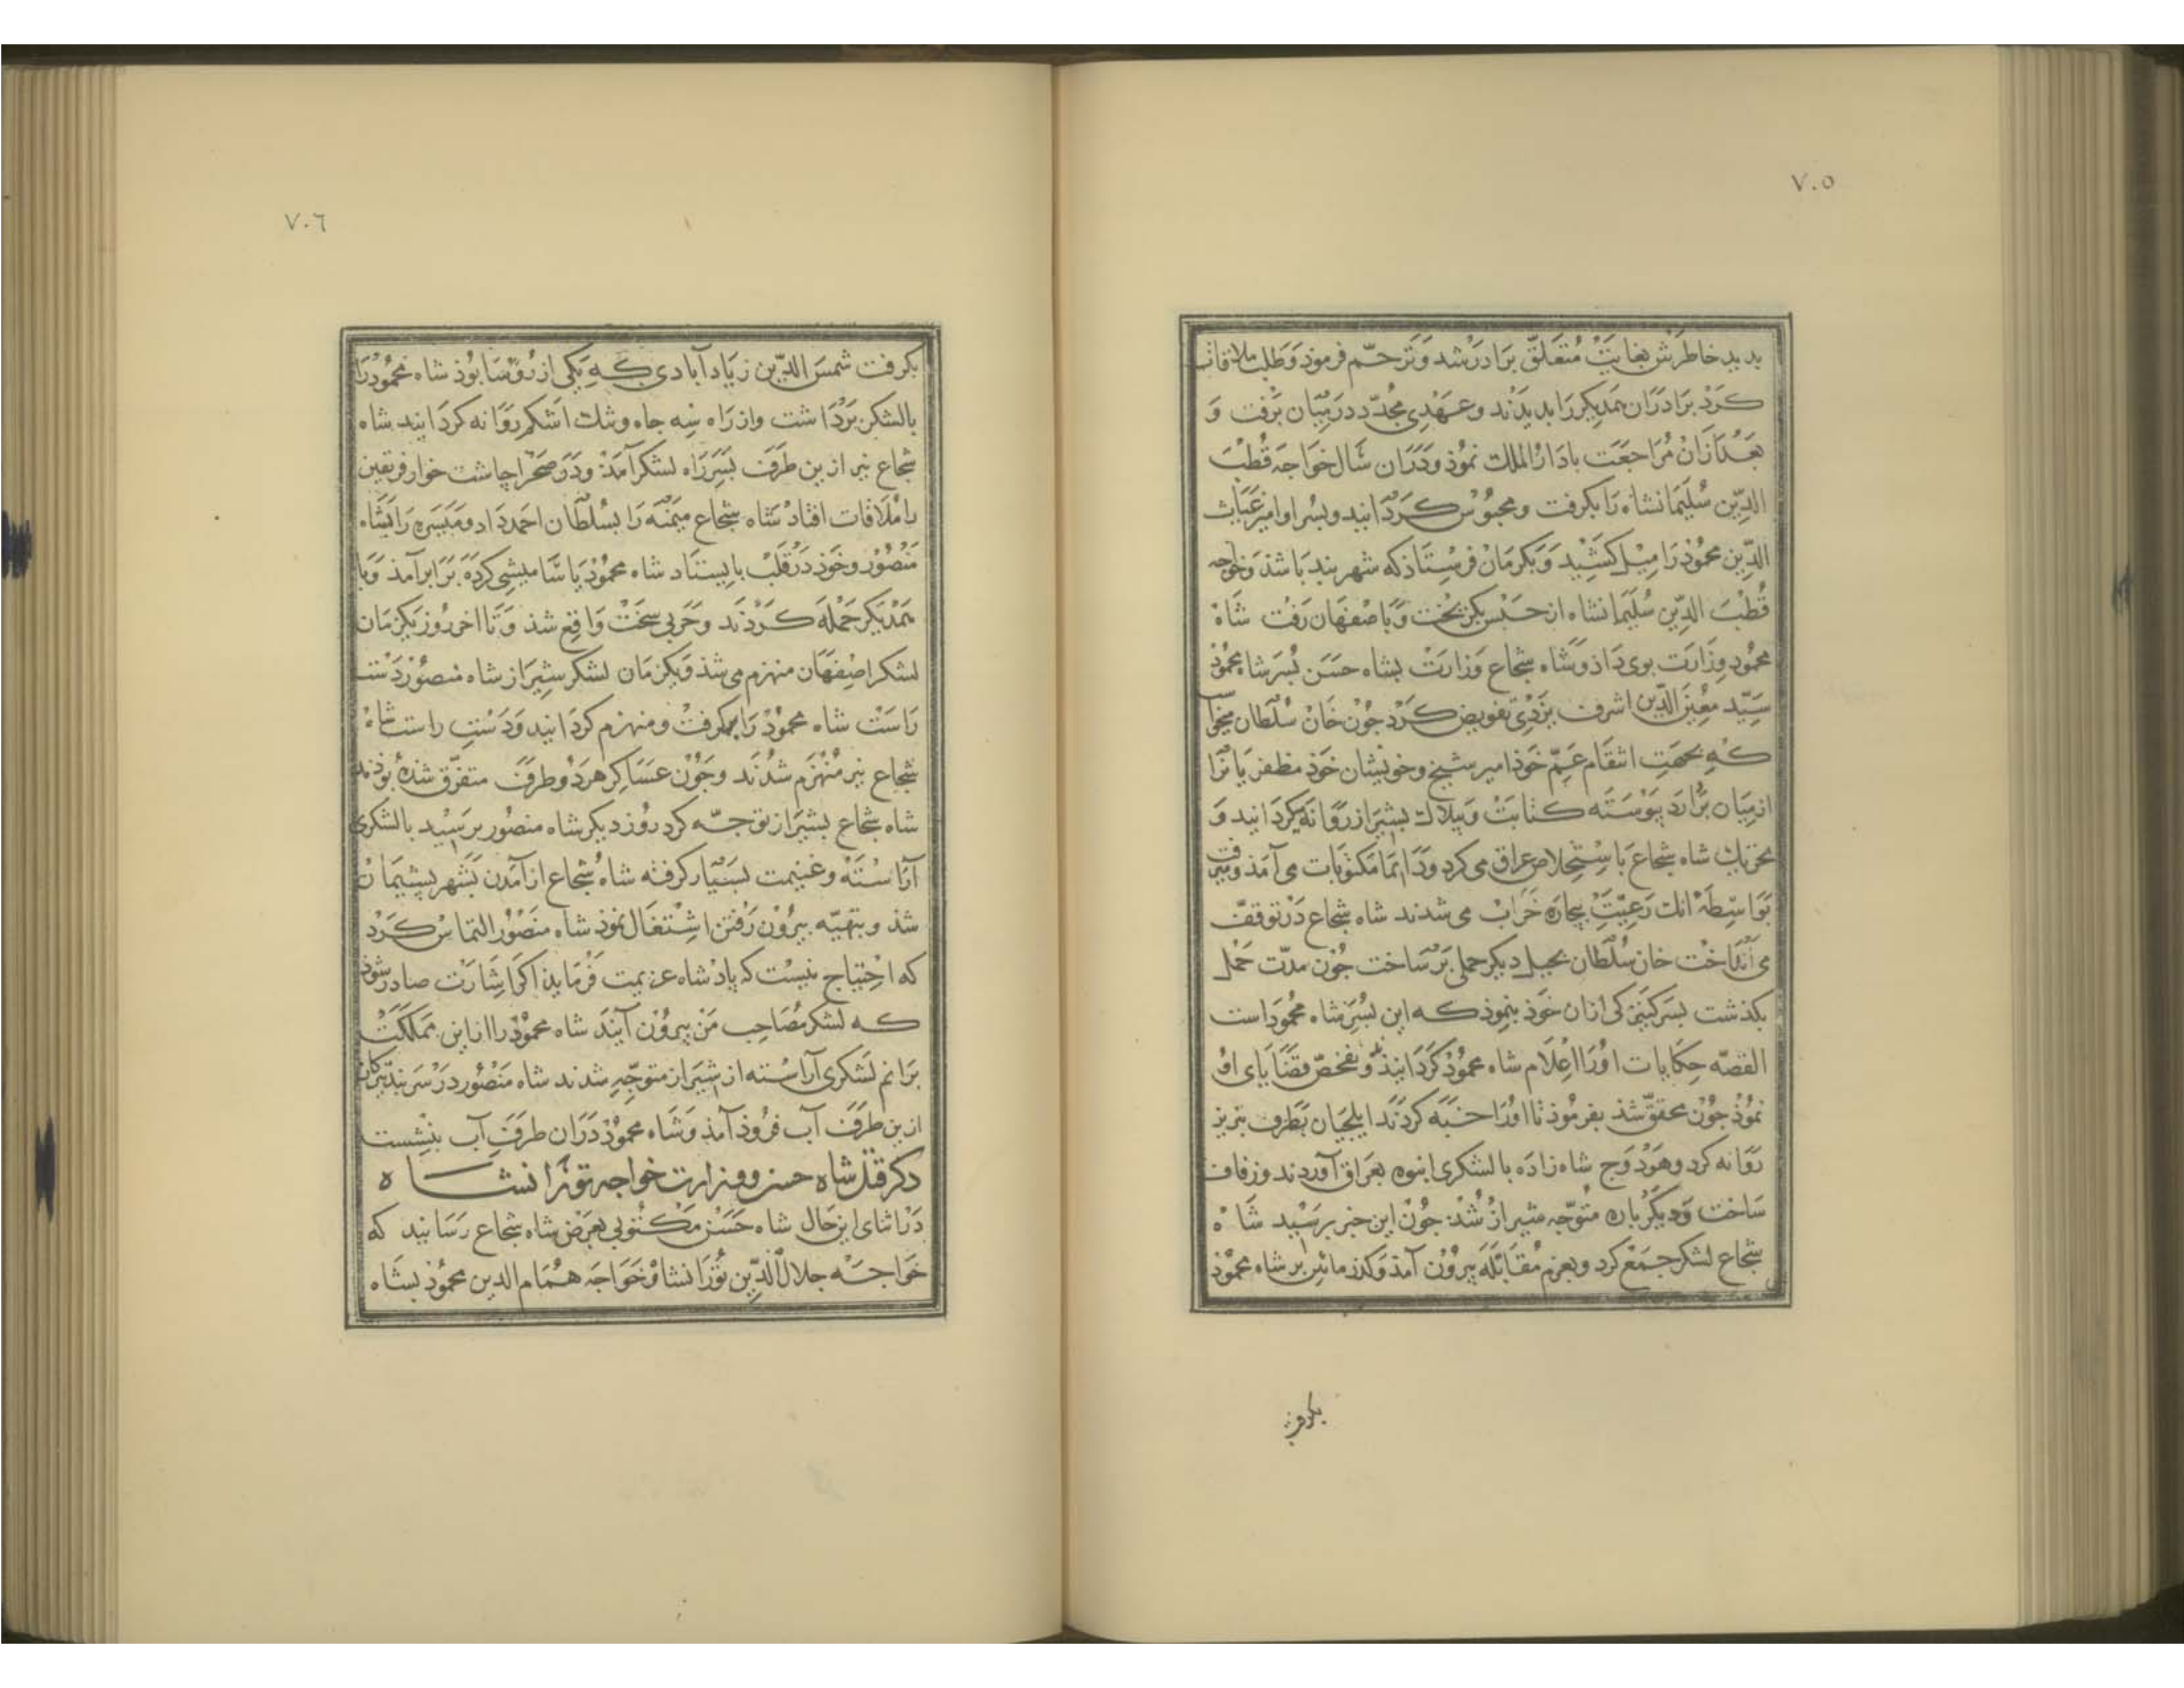 ٧٠٥
بدید خاطرش بغایت متعلق برادر شد و ترحّم فرموذ و طلب ملاقات
کرد برادران همدیکر را بدیدند و عهدی مجدّد در میان برفت و
بعد ازان مراجعت بادار الملک نموذ و دران سال خواجه قطب
الدّین سلیمانشاه را بکرفت و محبوس کردانید و پسر او امیر غیاث
الدّین محموذ را میل کشید و بکرمان فرستاذ که شهر بند باشذ و خواجه
قطب الدّین سلیمانشاه از حبس بکریخت و باصفهان رفت شاه
محمود وزارت بوی داذ و شاه شجاع وزارت بشاه حسن پسر شاه محموذ
سیّد معین الدّین اشرف یزدی تفویض کرد جون خان سلطان میخواست
که بجهت انتقام عمّ خوذ امیر شیخ و خویشان خوذ مظفریانرا
از میان بردارد پیوسته کتابت و بیلاک بشیراز روانه میکردانید و
تحریک شاه شجاع باستخلاص عراق می کرد و دایما مکتوبات می آمذ و میرفت
بواسطه انک رعیّت بیچاره خراب می شدند شاه شجاع در توقّف
می انداخت خان سلطان بحیل دیکر حملی بر ساخت جون مدّت حمل
بکذشت پسر کنیزکی ازان خوذ بنموذ که این پسر شاه محمود است
القصّه حکایات او را اعلام شاه محموذ کردانیذند و تفحّص قضایای او
نموذ جون محقق شذ بفرموذ تا او را خبه کردند ایلجیان بطرف تبریز
روانه کرد و هودج شاه زاده بالشکری انبوه بعراق آوردند و زفاف
ساخت و دیکر باره متوجّه شیراز شذ جون این خبر برسید شاه
شجاع لشکر جمع کرد و بعزم مقابله بیرون آمذ و کذر مائین بر شاه محموذ
بکرفت
٧٠٦
بکرفت شمس الدّین زیاد آبادی که یکی از روسا بوذ شاه محموذ را
بالشکر برداشت و از راه سه جاه و شک اشکم روانه کردانید شاه
شجاع نیز ازین طرف بسر راه لشکر آمذ و در صحرا جاشت خوار فریقین
را ملاقات افتاد شاه شجاع میمنه را بسلطان احمد داد و میسره را بشاه
منصور و خوذ در قلب بایستاد شاه محموذ یاسامیشی کرده برابر آمذ و با
همدیکر حمله کردند و حربی سخت واقع شذ و تا اخر روز یکزمان
لشکر اصفهان منهزم می شذ و یکزمان لشکر شیراز شاه منصور دست
راست شاه محموذ را بر کرفت و منهزم کردانید و دست راست شاه
شجاع نیز منهزم شدند و جون عساکر هر دو طرف متفرّق شده بوذند
شاه شجاع بشیراز توجّه کرد روز دیکر شاه منصور برسید بالشکری
آراسته و غنیمت بسیار کرفته شاه شجاع از آمدن بشهر پشیمان
شذ و بتهیّه بیرون رفتن اشتغال نموذ شاه منصور التماس کرد
که احتیاج نیست که پادشاه عزیمت فرمایذ اکر اشارت صادر شوذ
که لشکر مصاحب من بیرون آیند شاه محموذ را از این مملکت
برانم لشکری آراسته از شیراز متوجّه شدند شاه منصور در سر بند
ازین طرف آب فروذ آمذ و شاه محموذ دران طرف آب بنشست
ذکر قتل شاه حسن و وزارت خواجه تورانشاه
در اثنای این حال شاه حسن مکتوبی بعرض شاه شجاع رسانید که
خواجه جلال الدّین تورانشاه و خواجه همام الدین محموذ بشاه